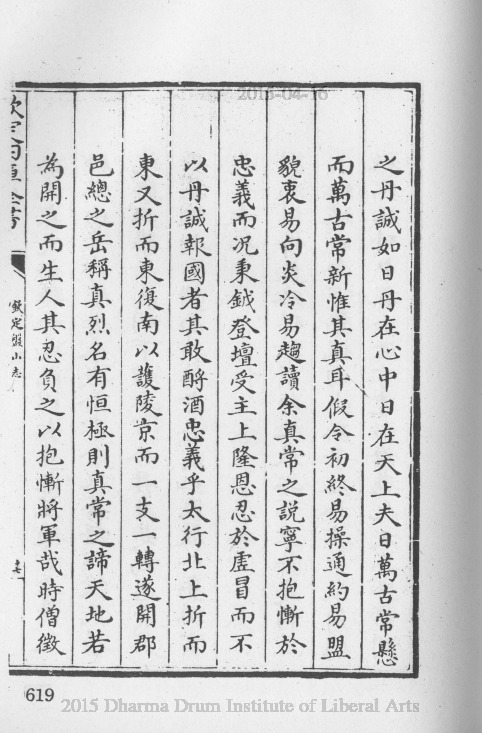 2015-04-16
之丹誠如日丹在心中日在天上夫日萬古常懸
而萬古常新惟其真耳假令初終易操通約易盟
貌衷易向炎冷易趨讀余真常之説寧不抱慚於
忠義而况秉鉞登壇受主上隆恩忍於虛冒而不
以丹誠報國者其敢酹酒忠義乎太行北上折而
東又折而東復南以護陵京而一支一轉遂開郡
邑總之岳稱真烈名有恒極則真常之諦天地若
為開之而生人其忍負之以抱慚將軍哉時僧徵
欽定四庫全書
欽定盤山志
619
2015 Dharma Drum Institute of Liberal Arts